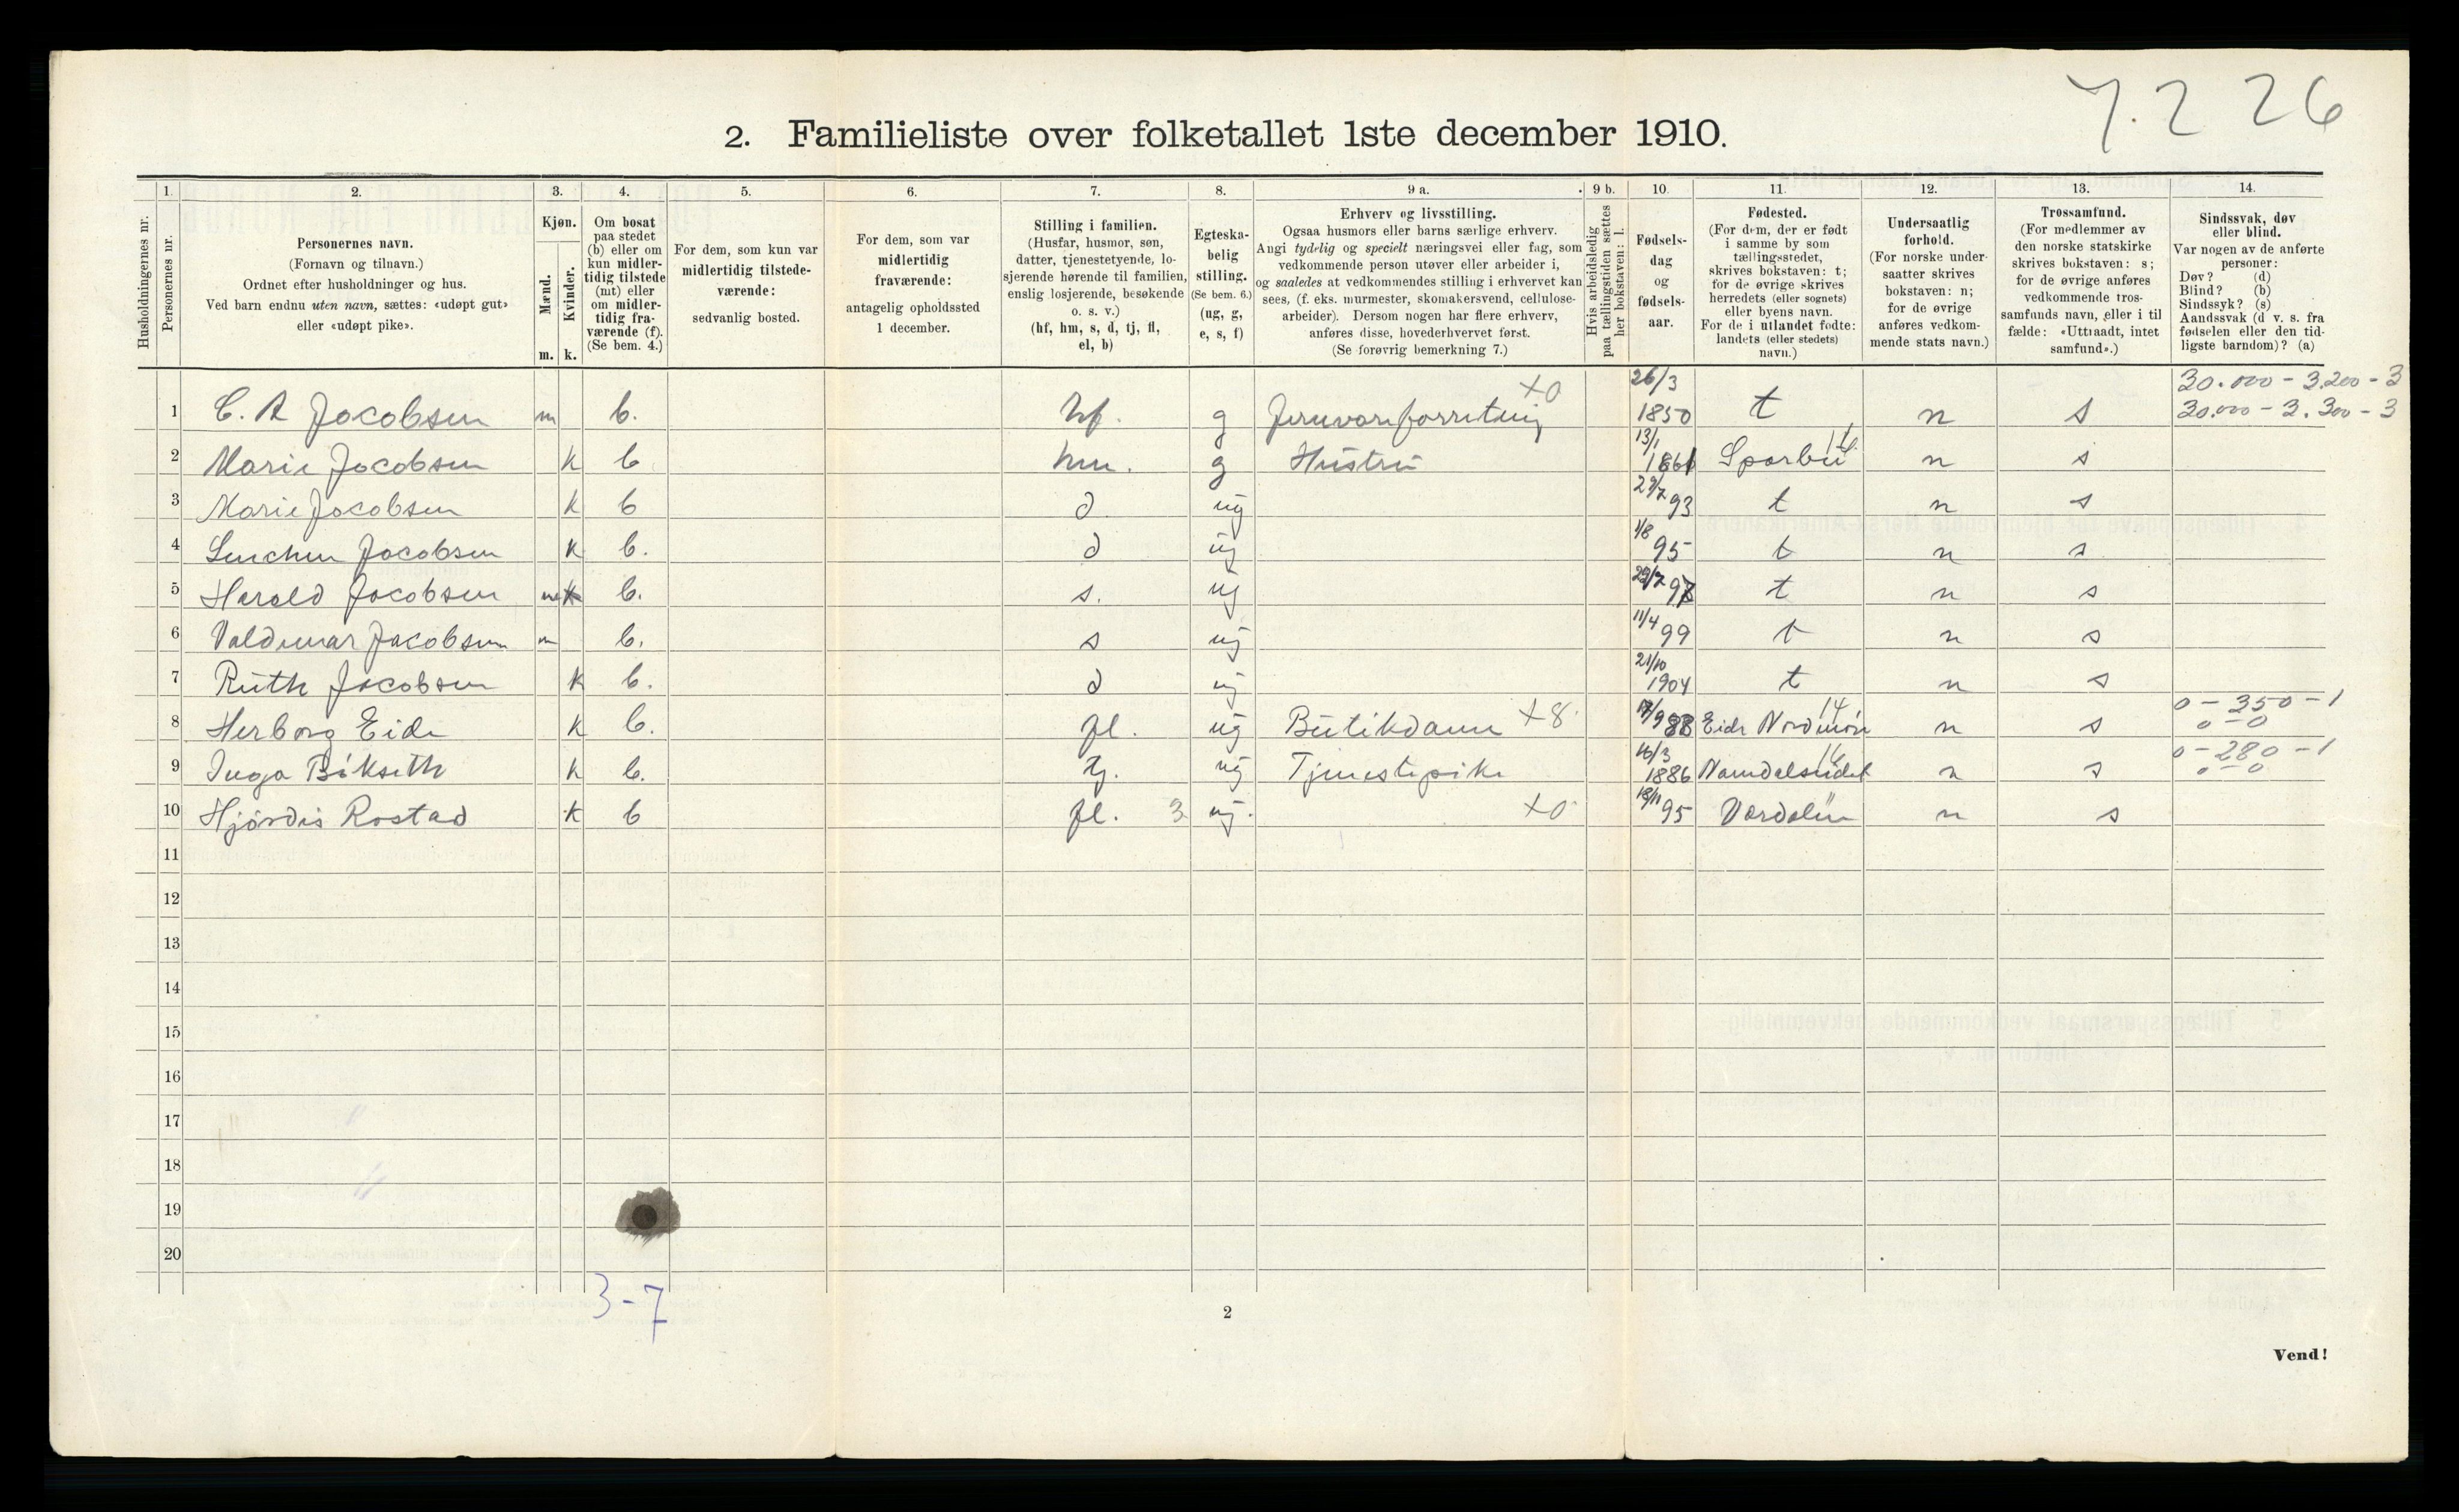 7.2 26
2. Familieliste over folketallet 1ste december 1910.
1. 2. 3. 4. 5. 6. 7. 8. 9 a. 9 b. 10. 11. 12. 13. 14.
Husholdningernes nr.
Personernes nr.
Personernes navn.
(Fornavn og tilnavn.)
Ordnet efter husholdninger og hus.
Ved barn endnu uten navn, sættes: «udøpt gut»
eller «udøpt pike».
Kjøn.
Mænd.
Kvinder.
m. k.
Om bosat
paa stedet
(b) eller om
kun midler-
tidig tilstede
(mt) eller
om midler-
tidig fra-
værende (f).
(Se bem. 4.)
For dem, som kun var
midlertidig tilstede-
værende:
sedvanlig bosted.
For dem, som var
midlertidig
fraværende:
antagelig opholdssted
1 december.
Stilling i familien.
(Husfar, husmor, søn,
datter, tjenestetyende, lo-
sjerende hørende til familien,
enslig losjerende, besøkende
o. s. v.)
(hf, hm, s, d, tj, fl,
el, b)
Egteska-
belig
stilling.
(Se bem. 6.)
(ug, g,
e, s, f)
Erhverv og livsstilling.
Ogsaa husmors eller barns særlige erhverv.
Angi tydelig og specielt næringsvei eller fag, som
vedkommende person utøver eller arbeider i,
og saaledes at vedkommendes stilling i erhvervet kan
sees, (f. eks. murmester, skomakersvend, cellulose-
arbeider). Dersom nogen har flere erhverv,
anføres disse, hovederhvervet først.
(Se forøvrig bemerkning 7.)
Hvis arbeidsledig
paa tællingstiden sættes
her bokstaven: l.
Fødsels-
dag
og
fødsels-
aar.
Fødested.
(For dem, der er født
i samme by som
tællingsstedet,
skrives bokstaven: t;
for de øvrige skrives
herredets (eller sognets)
eller byens navn.
For de i utlandet fødte:
landets (eller stedets)
navn.)
Undersaatlig
forhold.
(For norske under-
saatter skrives
bokstaven: n;
for de øvrige
anføres vedkom-
mende stats navn.)
Trossamfund.
(For medlemmer av
den norske statskirke
skrives bokstaven: s;
for de øvrige anføres
vedkommende tros-
samfunds navn, eller i til
fælde: «Uttraadt, intet
samfund».)
Sindssvak, døv
eller blind.
Var nogen av de anførte
personer:
Døv? (d)
Blind? (b)
Sindssyk? (s)
Aandssvak (d v. s. fra
fødselen eller den tid-
ligste barndom)? (a)
30.000 - 3.200 - 3
1 C. A Jacobsen m b. hf. g Jernvareforretning +0 26/3 1850 t n s 30.000 - 3.300 - 3
2 Marie Jacobsen k b hm. g Hustru 13/1 1861 Sparbu n s
3 Marie Jacobsen k b d ug 29/7 93 t n s
4 Lenchen Jacobsen k b. d ug 1/8 95 t n s
5 Harald Jacobsen m b. s. ug 29/7 97 t n s
6 Valdemar Jacobsen m b. s ug 11/4 99 t n s
7 Ruth Jacobsen k b. d ug 21/10 1904 t n s
8 Herborg Eide k b. fl. ug Butikdame +8 88 Eide Nordmør 14 n s 0 - 350 - 1
0 - 0
9 Inga Bikseth k b. tj. ug Tjenestepike 16/3 1886 Namdalseidet n s 0 - 280 - 1
0 - 0
10 Hjørdis Rostad k b fl. 3 ug. +0 18/11 95 Værdalen n s
11
12
13
14
15
16
17
18
19
20
3-7
2
Vend!